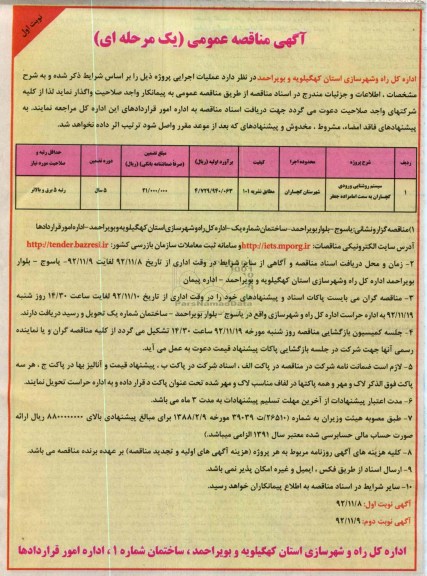 نوبت اول
آگهی مناقصه عمومی (یک مرحله ای)
اداره کل راه وشهرسازی استان کهگیلویه و بویراحمددر نظر دارد عملیات اجرایی پروژه ذیل را بر اساس شرایط ذکر شده و به شرح
مشخصات ، اطلاعات و جزئیات مندرج در اسناد مناقصه از طریق مناقصه عمومی به پیمانکار واجد صلاحیت واگذار نماید لذا از کلیه
شرکتهای واجد صلاحیت دعوت می گردد جهت دریافت اسناد مناقصه به اداره امور قراردادهای این اداره کل مراجعه نمایند. به
پیشنهادهای فاقد امضاء، مشروط ، مخدوش و پیشنهادهای که بعد از موعد مقرر واصل شود ترتیب اثر داده نخواهد شد.
ردیف شرح پروژه محدوده اجرا کیفیت برآورد اولیه (ریال) مبلغ تضمین (صرفاً ضمانتنامه بانکی) (ریال) دوره تضمین حداقل رتبه و صلاحیت مورد نیاز
۱ سیستم روشنایی ورودی گچساران به سمت امامزاده جعفر شهرستان گچساران مطابق نشریه ۱۰۱ ۴/۷۲۹/۹۴۰/۰۶۳ ۲۱/۰۰۰/۰۰۰ ۵ سال رتبه ۵ برق و بالاتر
۱)مناقصه گزار ونشانی: یاسوج - بلوار بویراحمد - ساختمان شماره یک - اداره کل راه وشهرسازی استان کهگیلویه وبویراحمد - اداره امور قراردادها
آدرس سایت الکترونیکی مناقصات: http://iets.mporg.ir و سامانه ثبت معاملات سازمان بازرسی کشور: http://tender.bazresi.ir
۲- زمان و محل دریافت اسناد مناقصه و آگاهی از سایر شرایط در وقت اداری از تاریخ ۹۲/۱۱/۸ لغایت ۹۲/۱۱/۹- یاسوج - بلوار
بویراحمد اداره کل راه وشهرسازی استان کهگیلویه و بویراحمد - اداره پیمان
۳- مناقصه گران می بایست پاکات اسناد و پیشنهادهای خود را در وقت اداری از تاریخ ۹۲/۱۱/۱۰ لغایت ساعت ۱۴/۳۰ روز شنبه
۹۲/۱۱/۱۹ به اداره حراست اداره کل راه و شهرسازی واقع در یاسوج - بلوار بویراحمد - ساختمان شماره یک تحویل و رسید دریافت دارند.
۴- جلسه کمیسیون بازگشایی مناقصه روز شنبه مورخه ۹۲/۱۱/۱۹ ساعت ۱۴/۳۰ تشکیل می گردد از کلیه مناقصه گران و یا نماینده
رسمی آنها جهت شرکت در جلسه بازگشایی پاکات پیشنهاد قیمت دعوت به عمل می آید.
۵- لازم است ضمانت نامه شرکت در مناقصه در پاکت الف ، اسناد شرکت در پاکت ب ، پیشنهاد قیمت و آنالیز بها در پاکت ج ، هر سه
پاکت فوق الذکر لاک و مهر و همه پاکتها در لفاف مناسب لاک و مهر شده تحت عنوان پاکت د قرار داده و به اداره حراست تحویل نمایند.
۶- مدت اعتبار پیشنهادات از آخرین مهلت تسلیم پیشنهادات به مدت ۳ ماه می باشد.
۷- طبق مصوبه هیئت وزیران به شماره (۲۶۵۱۰/ت ۳۹۰۳۹ مورخه ۱۳۸۸/۲/۹ برای مبالغ پیشنهادی بالای ۸۸۰۰۰۰۰۰۰۰ ریال ارائه
صورت حساب مالی حسابرسی شده معتبر سال ۱۳۹۱ الزامی میباشد.)
۸- کلیه هزینه های آگهی روزنامه مربوط به هر پروژه (هزینه آگهی های اولیه و تجدید مناقصه) بر عهده برنده مناقصه می باشد.
۹- ارسال اسناد از طریق فکس ، ایمیل و غیره امکان پذیر نمی باشد.
۱۰- سایر شرایط در اسناد مناقصه به اطلاع پیمانکاران خواهد رسید.
آگهی نوبت اول: ۹۲/۱۱/۸
آگهی نوبت دوم: ۹۲/۱۱/۹
اداره کل راه و شهرسازی استان کهگیلویه و بویراحمد ، ساختمان شماره ۱ ، اداره امور قراردادها